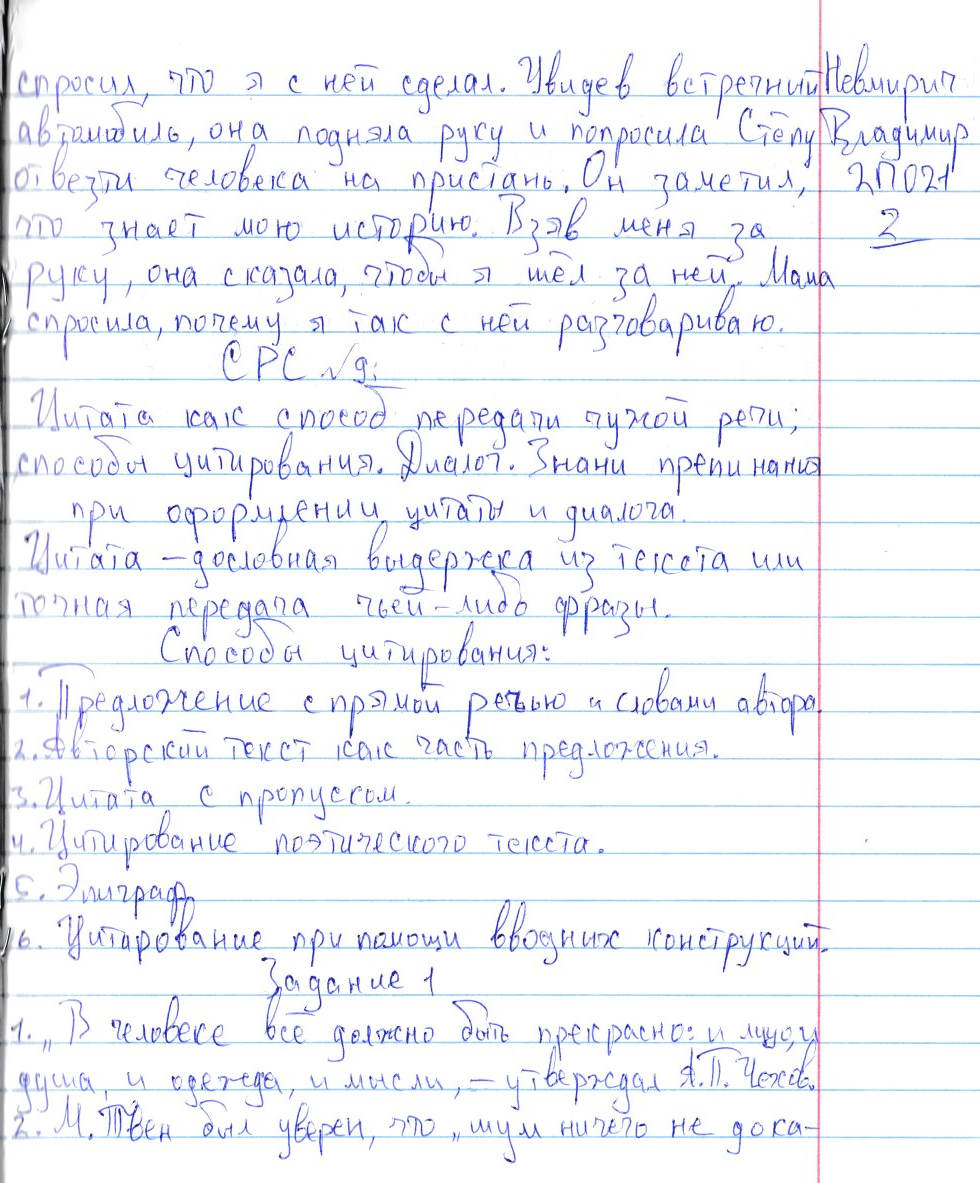 спросил, что я с ней сделал. Увидев встречний Невмирич
автомобиль, она подняла руку и попросила Стёпу Владимир
отвезти человека на пристань. Он заметил, 2П021
что знает мою историю. Взяв меня за 2
руку, она сказала, чтобы я шёл за ней. Мама
спросила, почему я так с ней разговариваю.
СРС №9:
Цитата как способ передачи чужой речи;
способы цитирования. Диалог. Знани препинания
при оформлении цитаты и диалога.
Цитата – дословная выдержка из текста или
точная передача чьей-либо фразы.
Способы цитирования:
1. Предложение с прямой речью и словами автора.
2. Авторский текст как часть предложения.
3. Цитата с пропуском.
4. Цитирование поэтического текста.
5. Эпиграф.
6. Цитарование при помощи вводних конструкций.
Задание 1
1. „В человеке всё должно быть прекрасно: и лицо, и
душа, и одежда, и мысли, – утверждал А.П. Чехов.
2. М. Твен был уверен, что „шум ничего не дока-